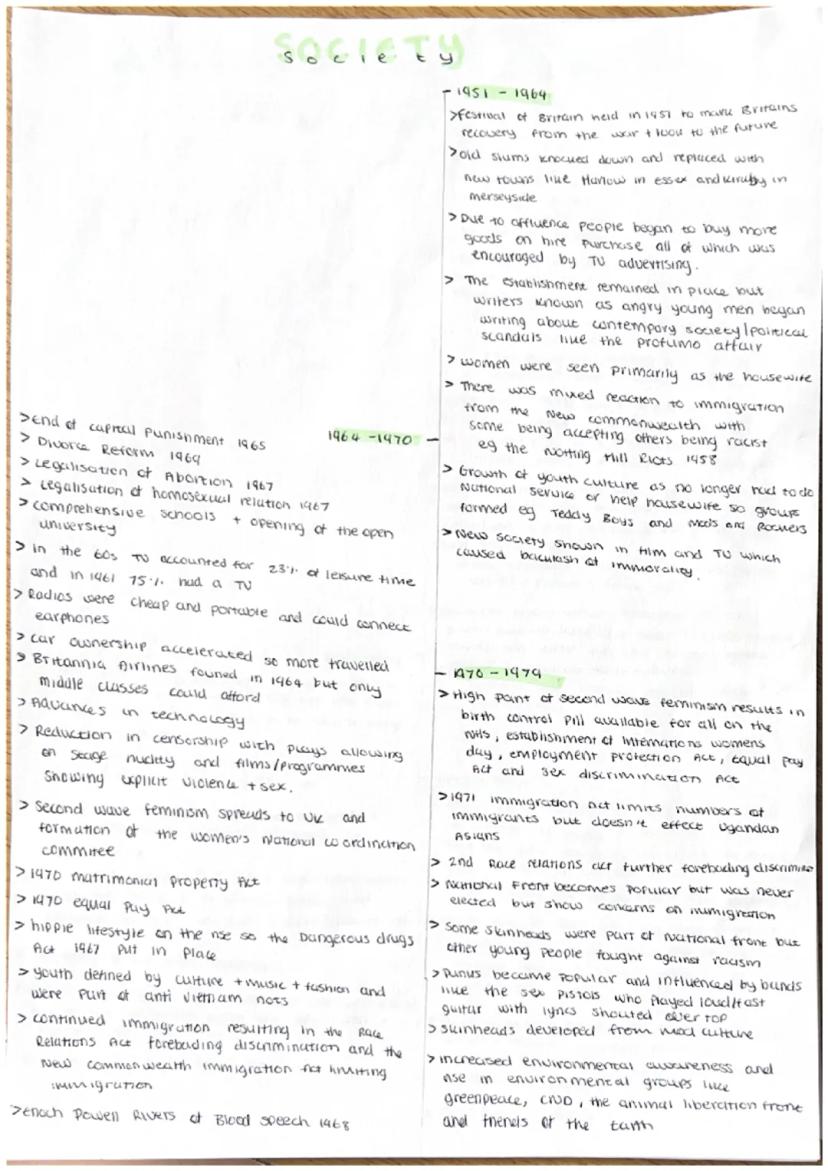 SOCIETY
society
1951 - 1964
>Festival of Britain held in 1951 to mark Britains
recovery from the war + look to the future
> old slums knocked down and replaced with
new towns like Harlow in essex and kirkby in
merseyside
> Due to affluence people began to buy more
goods on hire purchase all of which was
encouraged by TV advertising.
> The establishment remained in place but
writers known as angry young men began
writing about contempory society/political
scandals like the profumo affair
> women were seen primarily as the housewife
> There was mixed reaction to immigration
from the New commonwealth with
some being accepting others being racist
eg the Notting Hill Riots 1958
> Growth of youth culture as no longer had to do
National Service or help housewife so groups
formed eg Teddy Boys and Mods and Rockers
> New society shown in film and TV which
caused backlash at immorality.
1964 - 1970
>End of capital punishment 1965
> Divorce Reform 1969
> Legalisation of Abortion 1967
> Legalisation of homosexual relation 1967
> comprehensive schools + opening of the open
university
> in the 60s TV accounted for 23% of leisure time
and in 1961 75% had a TV
> Radios were cheap and portable and could connect
earphones
> car ownership accelerated so more travelled
> Britannia Airlines founed in 1964 but only
middle classes could afford
> Advances in technology
> Reduction in censorship with plays allowing
on stage nudity and films/programmes
showing explicit violence + sex.
> Second wave feminism spreads to UK and
formation of the women's National coordination
commitee
> 1970 matrimonial property Act
> 1970 equal Pay Act
> hippie lifestyle on the rise so the Dangerous drugs
Act 1967 put in place
> youth defined by culture + music + fashion and
were part of anti vietnam riots
> continued immigration resulting in the Race
Relations Act forebading discrimination and the
New commonwealth immigration Act limiting
immigration
>Enoch Powell Rivers of Blood speech 1968
1970 - 1979
> High point of second wave feminism results in
birth control pill available for all on the
NHS, establishment of Internations womens
day, employment protection Act, equal pay
Act and sex discrimination Act
>1971 immigration act limits numbers of
immigrants but doesn't effect Ugandan
Asians
> 2nd Race relations act further forebading discrimine
> National Front becomes popular but was never
elected but show concerns on immigration
> Some skinheads were part of National front but
other young people fought against racism
> Punks became popular and influenced by bands
like the sex pistols who played loud/fast
guitar with lyrics shouted over top
> skinheads developed from mod culture
> increased environmental awareness and
rise in environmental groups like
greenpeace, CND, the animal liberation front
and friends of the earth